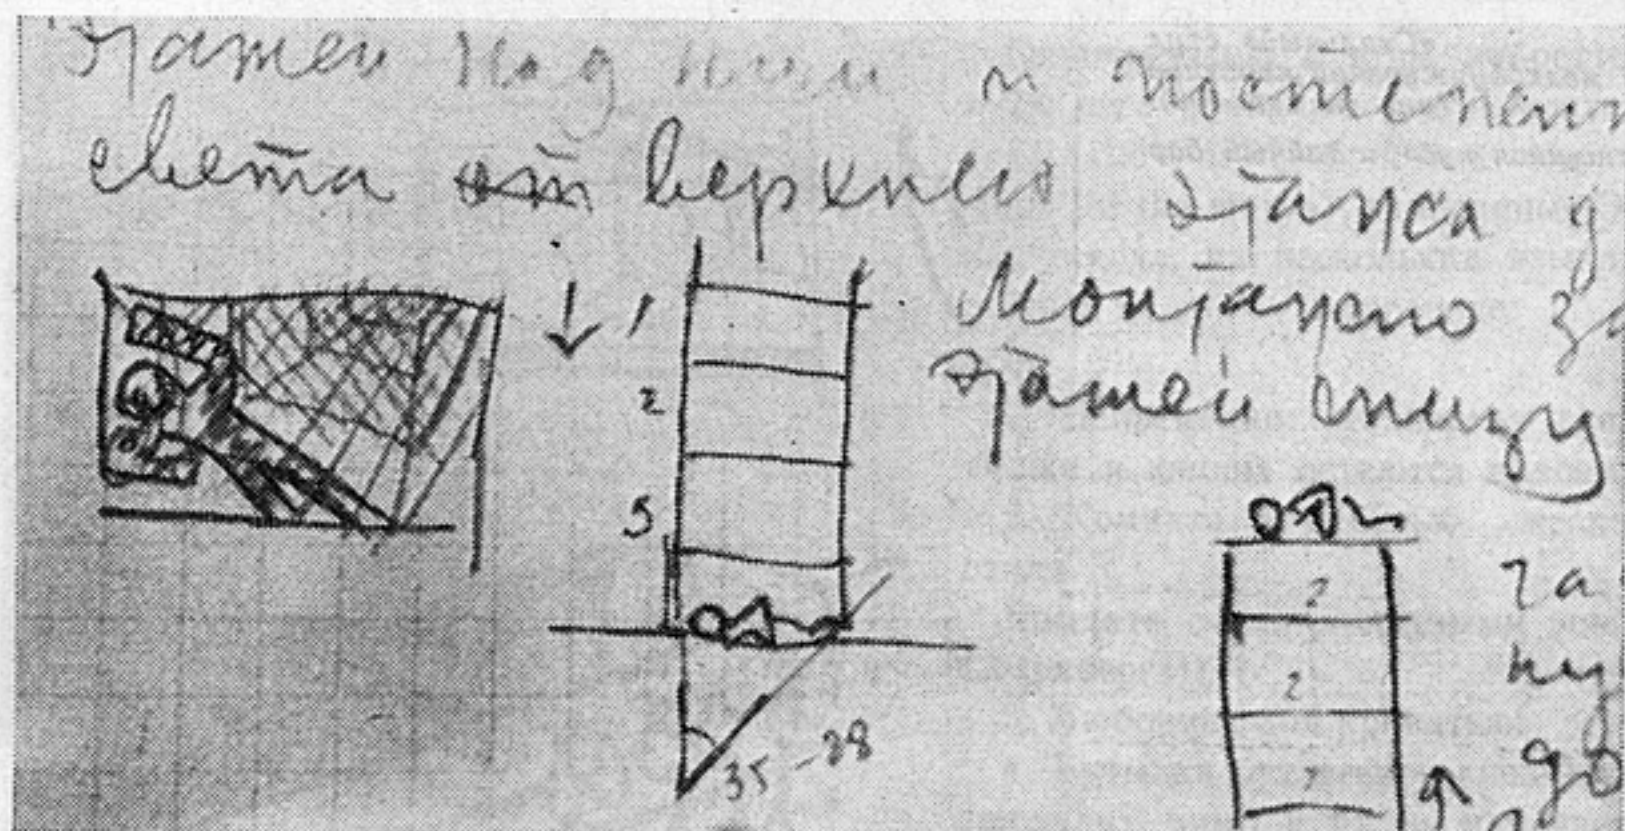 этажей над ними и постепенн
света от верхнего этажа д
Монтажно за
этажей снизу
1
2
3
35-28
2
2
1
га
ну
до